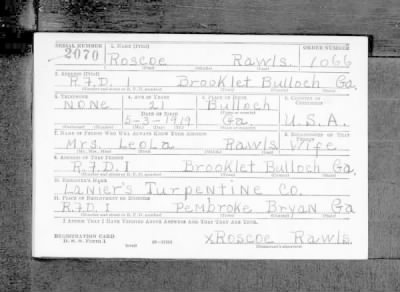 SERIAL NUMBER 1. NAME (Print) ORDER NUMBER
2070 Roscoe Rawls. 1066
(First) (Middle) (Last)
2. ADDRESS (Print)
R.F.D. 1 Brooklet Bulloch Ga.
(Number and street or R. F. D. number) (Town) (County) (State)
3. TELEPHONE 4. AGE IN YEARS 5. PLACE OF BIRTH 6. COUNTRY OF CITIZENSHIP
NONe 21 Bulloch
DATE OF BIRTH (Town or county)
5-3-1919 Ga. U.S.A.
(Exchange) (No.) (Mo.) (Day) (Yr.) (State or country)
7. NAME OF PERSON WHO WILL ALWAYS KNOW YOUR ADDRESS 8. RELATIONSHIP OF THAT PERSON
Mrs. Leola Rawls Wife
(Mr., Mrs., Miss) (First) (Middle) (Last)
9. ADDRESS OF THAT PERSON
R.F.D. 1 Brooklet Bulloch Ga.
(Number and street or R. F. D. number) (Town) (County) (State)
10. EMPLOYER'S NAME
Lanier's Turpentine Co.
11. PLACE OF EMPLOYMENT OR BUSINESS
R.F.D. 1 Pembroke Bryan Ga
(Number and street or R. F. D. number) (Town) (County) (State)
I AFFIRM THAT I HAVE VERIFIED ABOVE ANSWERS AND THAT THEY ARE TRUE.
REGISTRATION CARD
D. S. S. Form 1 (over) xRoscoe Rawls.
(Registrant's signature)